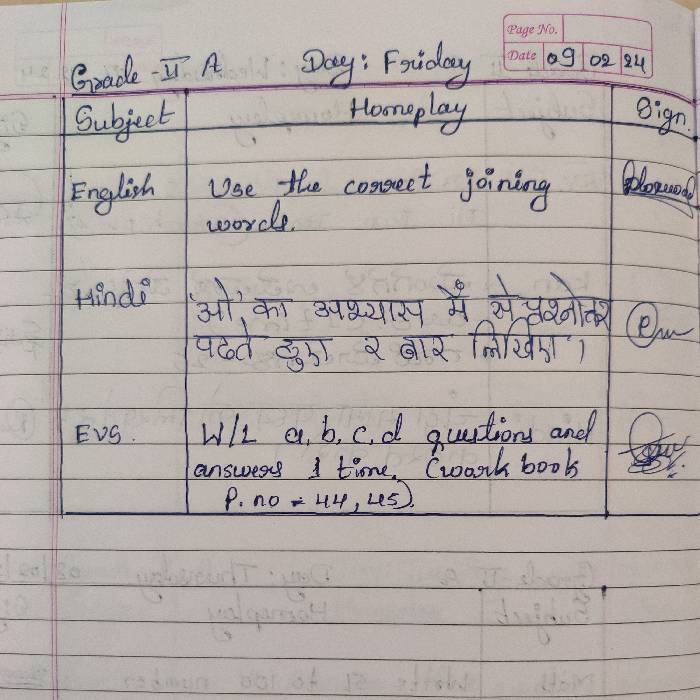 Page No.
Grade - II A Day: Friday Date 09 02 24
Subject Homeplay Sign
English Use the correct joining
words.
Hindi 'ओ' का अभ्यास में से प्रश्नोतर
पढते हुए २ बार लिखिए।
EVS. W/L a, b, c, d questions and
answers 1 time. (woark book
P. no = 44, 45)